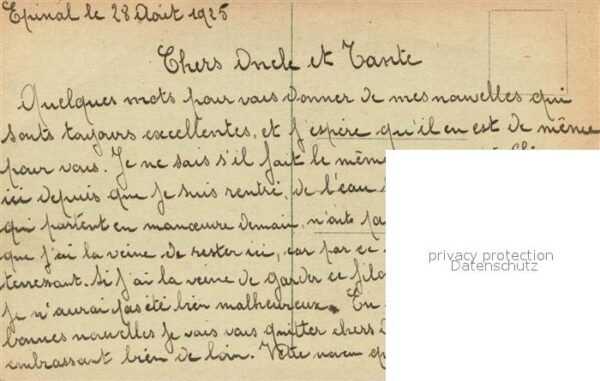 Epinal le 28 Août 1925
Chers Oncle et Tante
Quelques mots pour vous donner de mes nouvelles qui
sonts toujours excellentes, et j'espère qu'il en est de même
pour vous. Je ne sais s'il fait le même
ici depuis que je suis rentré, de l'eau
qui partent en manœuvre demain, n'ont pa
que j'ai la veine de rester ici, car par ce
terressant. Si j'ai la veine de garder ce filo
je n'aurai pas été bien malheureux. En
bonnes nouvelles je vais vous quitter chers
embrassant bien de loin. Votre neveu q
privacy protection
Datenschutz